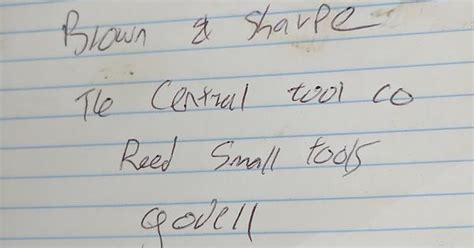 Brown & Sharpe
The Central tool co
Reed Small tools